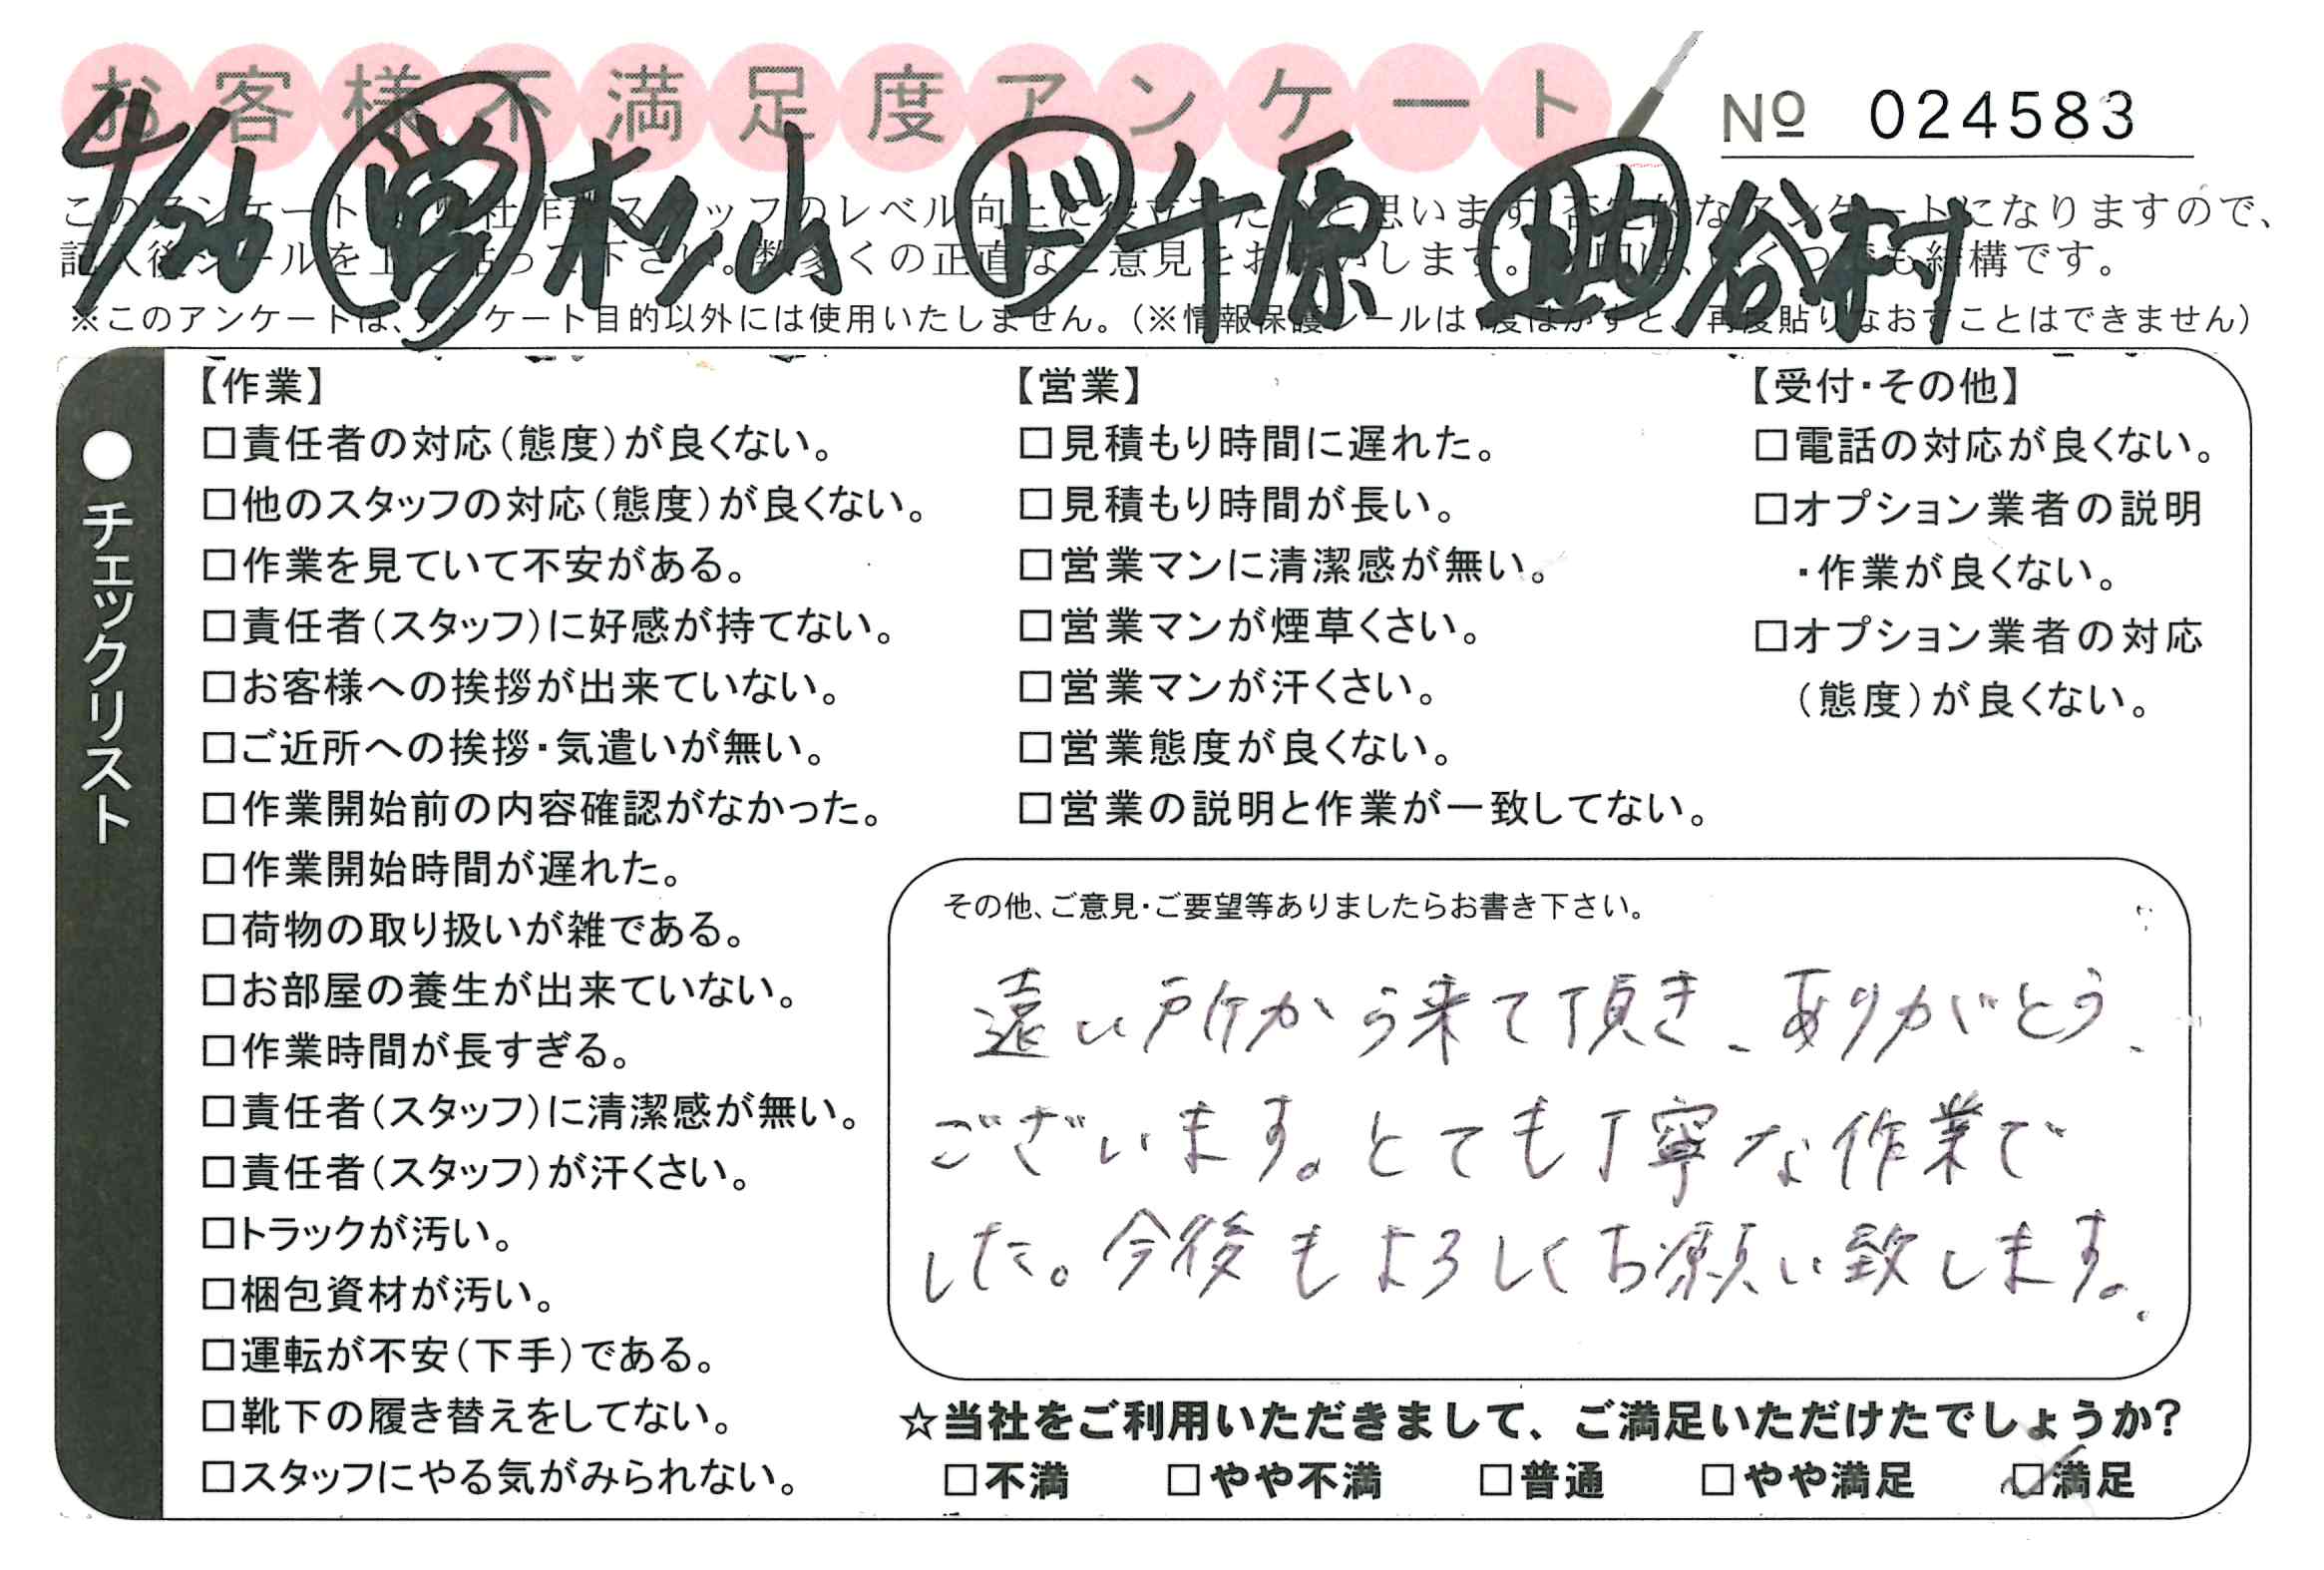 お客様不満足度アンケート
№ 024583
4/26 営 杉山 ド 千原 助 谷村
このアンケート スタッフのレベル向上に役立 思います。否定的なアンケートになりますので、
記入後シールを上に貼って下さい。数多くの正直なご意見をお願いします。 結構です。
※このアンケートは、アンケート目的以外には使用いたしません。(※情報保護シールは1度はがすと、再度貼りなおすことはできません)
●チェックリスト
【作業】
□責任者の対応(態度)が良くない。
□他のスタッフの対応(態度)が良くない。
□作業を見ていて不安がある。
□責任者(スタッフ)に好感が持てない。
□お客様への挨拶が出来ていない。
□ご近所への挨拶・気遣いが無い。
□作業開始前の内容確認がなかった。
□作業開始時間が遅れた。
□荷物の取り扱いが雑である。
□お部屋の養生が出来ていない。
□作業時間が長すぎる。
□責任者(スタッフ)に清潔感が無い。
□責任者(スタッフ)が汗くさい。
□トラックが汚い。
□梱包資材が汚い。
□運転が不安(下手)である。
□靴下の履き替えをしてない。
□スタッフにやる気がみられない。
【営業】
□見積もり時間に遅れた。
□見積もり時間が長い。
□営業マンに清潔感が無い。
□営業マンが煙草くさい。
□営業マンが汗くさい。
□営業態度が良くない。
□営業の説明と作業が一致してない。
【受付・その他】
□電話の対応が良くない。
□オプション業者の説明
・作業が良くない。
□オプション業者の対応
(態度)が良くない。
その他、ご意見・ご要望等ありましたらお書き下さい。
遠い所から来て頂き、ありがとう、
ございます。とても丁寧な作業で
した。今後もよろしくお願い致します。
☆当社をご利用いただきまして、ご満足いただけたでしょうか?
□不満 □やや不満 □普通 □やや満足 ☑満足